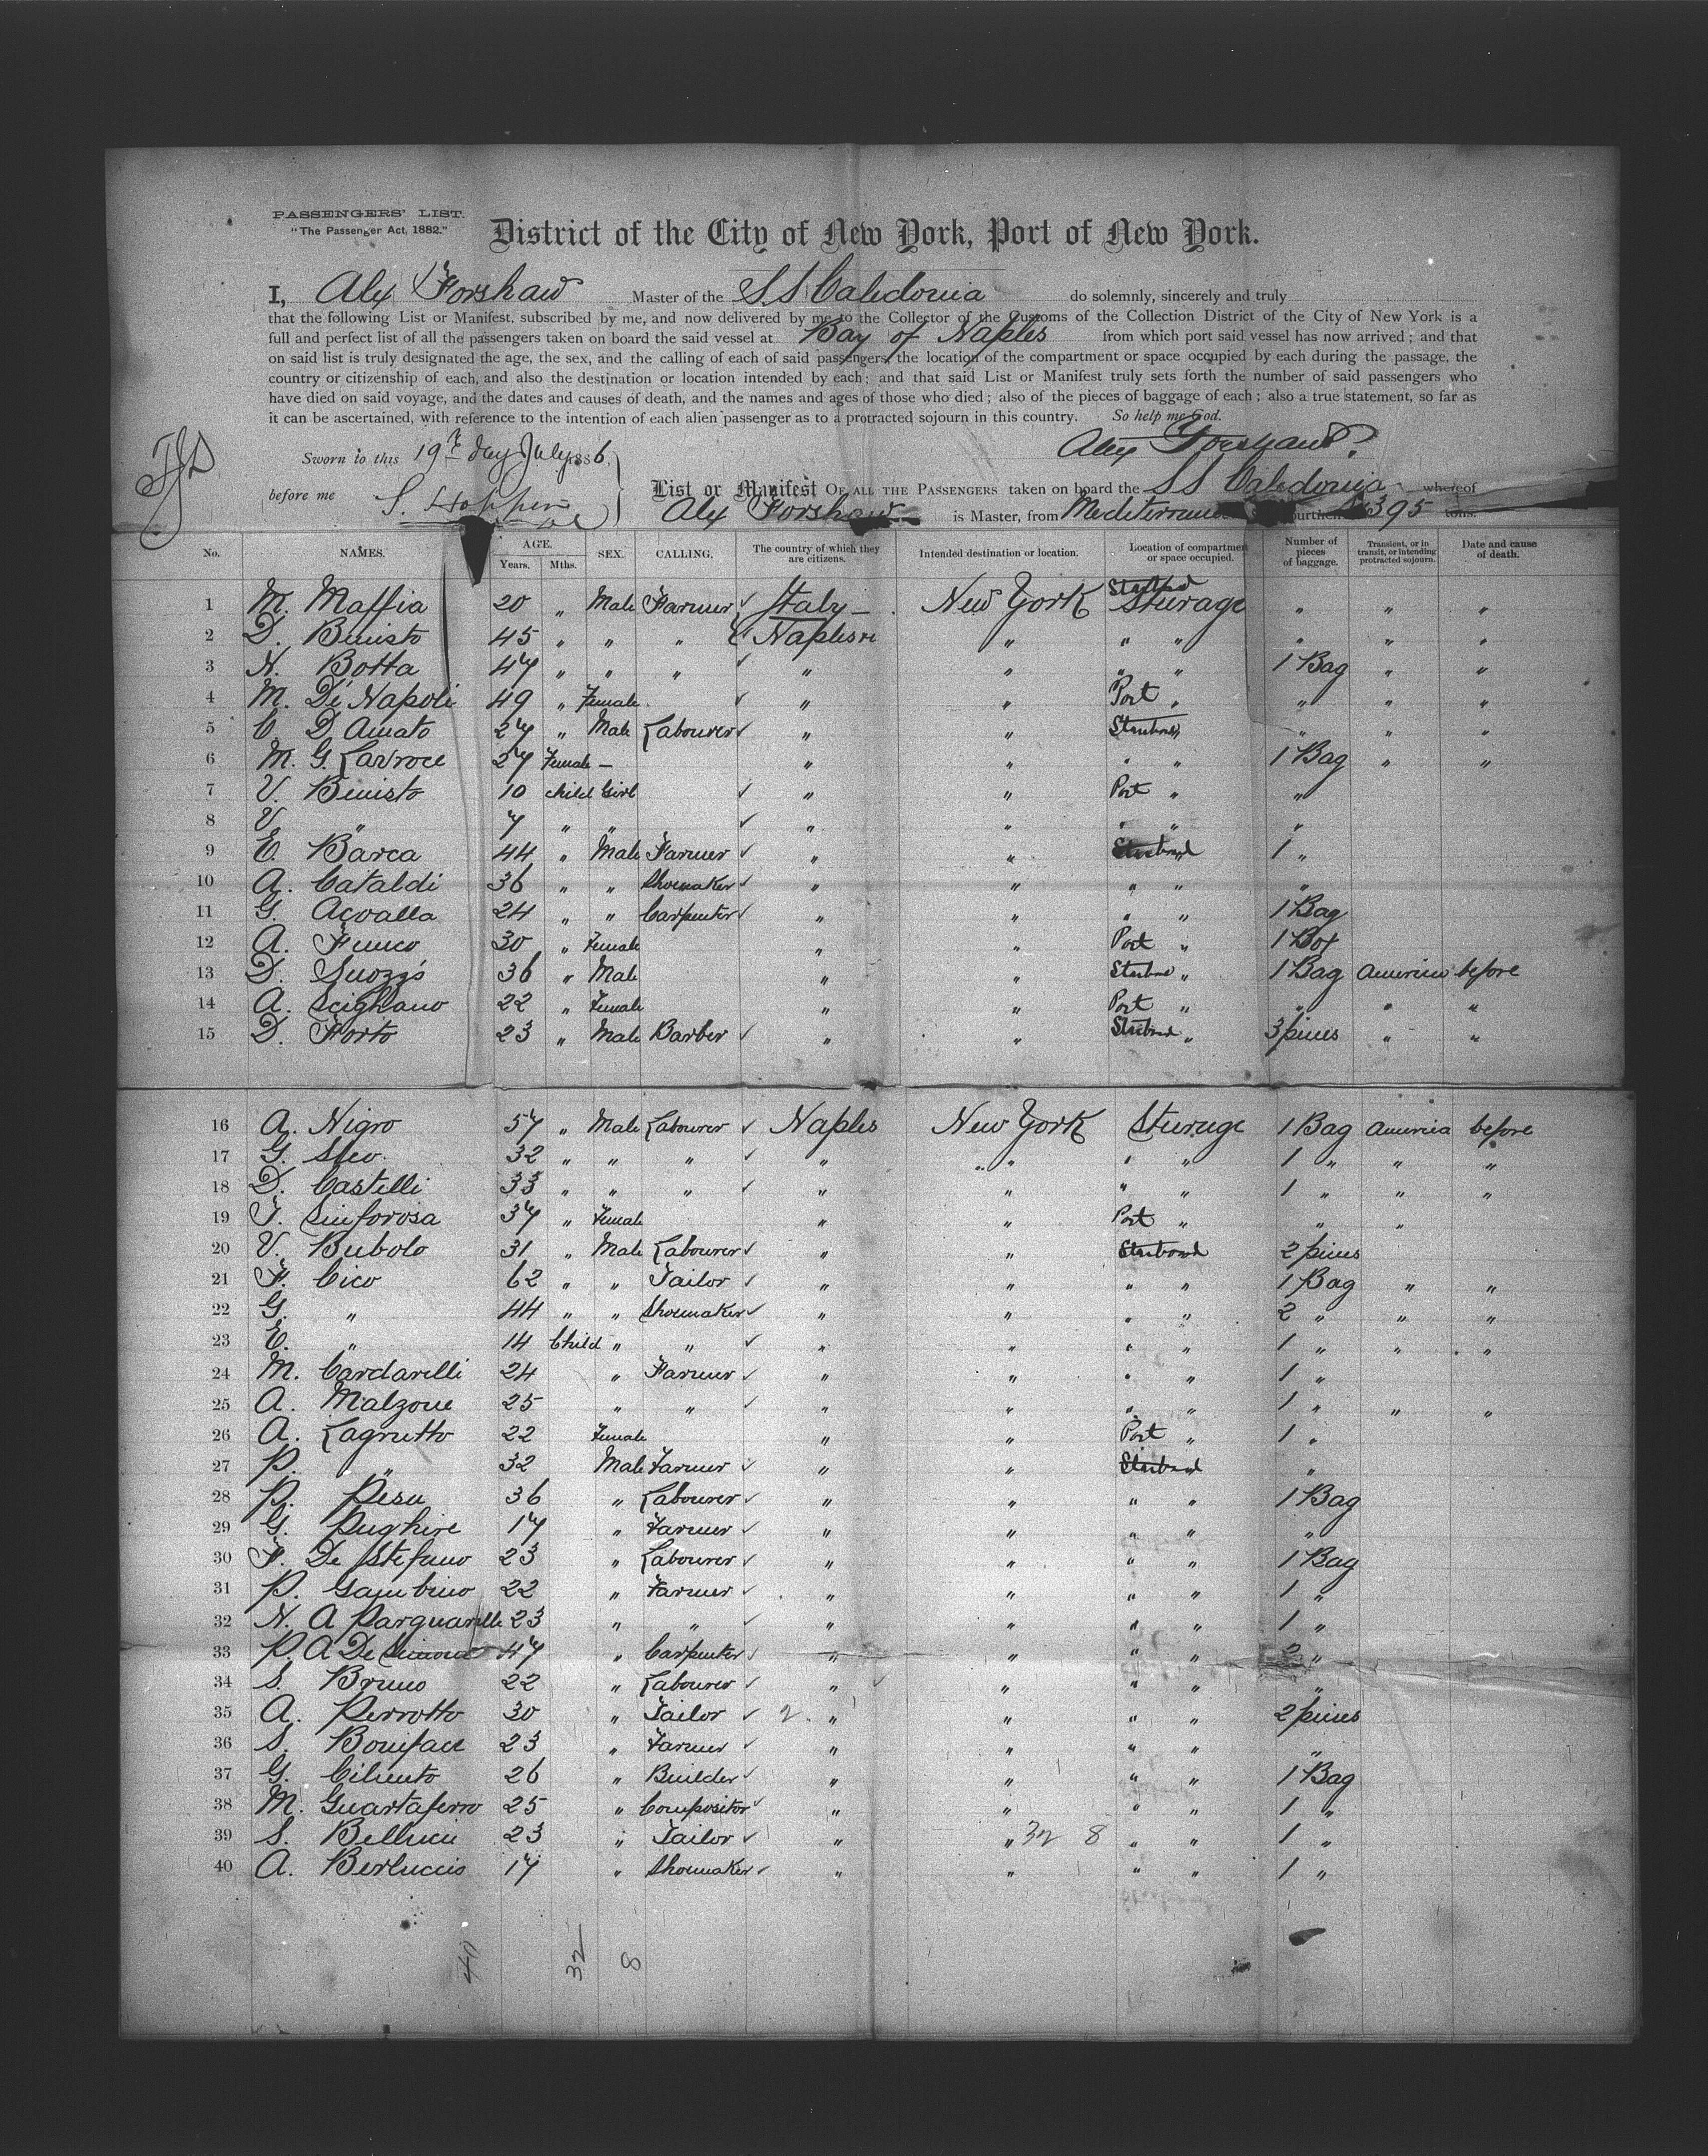 PASSENGERS' LIST.
"The Passenger Act, 1882."
District of the City of New York, Port of New York.
I, Alex Forshaw Master of the S.S Caledonia do solemnly, sincerely and truly
that the following List or Manifest, subscribed by me, and now delivered by me to the Collector of the Customs of the Collection District of the City of New York is a
full and perfect list of all the passengers taken on board the said vessel at Bay of Naples from which port said vessel has now arrived; and that
on said list is truly designated the age, the sex, and the calling of each of said passengers, the location of the compartment or space occupied by each during the passage, the
country or citizenship of each, and also the destination or location intended by each; and that said List or Manifest truly sets forth the number of said passengers who
have died on said voyage, and the dates and causes of death, and the names and ages of those who died; also of the pieces of baggage of each; also a true statement, so far as
it can be ascertained, with reference to the intention of each alien passenger as to a protracted sojourn in this country. So help me God.
Alex Forshaw
Sworn to this 19th day July 1886
before me S. Hopper
List or Manifest OF ALL THE PASSENGERS taken on board the SS Caledonia whereof
Alex Forshaw is Master, from burthen 1395 tons.
No. NAMES. AGE. Years. Mths. SEX. CALLING. The country of which they are citizens. Intended destination or location. Location of compartment or space occupied. Number of pieces of baggage. Transient, or in transit, or intending protracted sojourn. Date and cause of death.
1 M. Maffia 20 " Male Farmer Italy New York Starbd Sturage " " "
2 D. Binisto 45 " " " Naples " " " " " "
3 N. Botta 47 " " " " " " " 1 Bag " "
4 M. Di Napoli 49 " Female " " Port " " " "
5 C. D Amato 27 " Male Labourer " " Starboard " " "
6 M. G. Larroce 27 Female " " " " 1 Bag " "
7 V. Binisto 10 child Girl " " Port " "
8 V. " 7 " " " " " " "
9 E. Barca 44 " Male Farmer " " Starboard 1 "
10 A. Cataldi 36 " " Shoemaker " " " " "
11 G. Acvalla 24 " " Carpenter " " " " 1 Bag
12 A. Funco 30 " Female " " Port " 1 Box
13 D. Suozzs 36 " Male " " Starbd " 1 Bag America before
14 A. Scigliano 22 " Female " " Port " " " "
15 D. Forto 23 " Male Barber " " Starbord " 3 pieces " "
16 A. Nigro 57 " Male Labourer Naples New York Sturage 1 Bag America before
17 G. Sleo 32 " " " " " " " 1 " " "
18 D. Castelli 33 " " " " " " " 1 " " "
19 T. Sinforosa 37 " Female " " Port " " "
20 V. Bubolo 31 " Male Labourer " " Starboard 2 pieces
21 F. Cico 62 " " Tailor " " " " 1 Bag " "
22 G. " 44 " " Shoemaker " " " " 2 " " "
23 E. " 14 Child " " " " " " 1 " " "
24 M. Cardarelli 24 " Farmer " " " " 1 "
25 A. Malzone 25 " " " " " " 1 " " "
26 A. Lagrutto 22 Female " " Port " 1 "
27 P. " 32 Male Farmer " " Starboard "
28 P. Pesu 36 " Labourer " " " " 1 Bag
29 G. Pughire 17 " Farmer " " " " "
30 F. De Stefano 23 " Labourer " " " " 1 Bag
31 P. Gambino 22 " Farmer " " " " 1 "
32 N. A Parquarille 23 " " " " " " 1 "
33 P. A De Simone 47 " Carpenter " " " " 2 "
34 S. Bruno 22 " Labourer " " " " "
35 A. Perrotto 30 " Tailor 2. " " " " 2 pieces
36 S. Boniface 23 " Farmer " " " " "
37 G. Cilento 26 " Builder " " " " 1 Bag
38 M. Guartaferro 25 " Compositor " " " " 1 "
39 S. Bellucii 23 " Tailor " " 32 8 " " 1 "
40 A. Berluccis 17 " Shoemaker " " " " 1 "
40 32 8